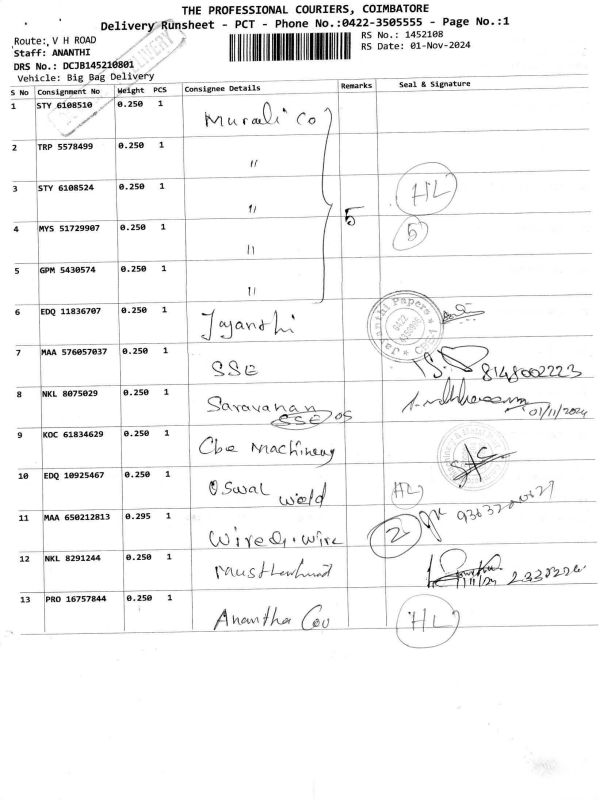 THE PROFESSIONAL COURIERS, COIMBATORE
Delivery Runsheet - PCT - Phone No.:0422-3505555 - Page No.:1
Route: V H ROAD
RS No.: 1452108
Staff: ANANTHI
RS Date: 01-Nov-2024
DRS No.: DCJB145210801
Vehicle: Big Bag Delivery
DELIVERY
S No Consignment No Weight PCS Consignee Details Remarks Seal & Signature
1 STY 6108510 0.250 1 Murali Co
2 TRP 5578499 0.250 1 "
3 STY 6108524 0.250 1 " HL
4 MYS 51729907 0.250 1 " 5 5
5 GPM 5430574 0.250 1 "
6 EDQ 11836707 0.250 1 Jayanthi Jayanthi Papers 0422
7 MAA 576057037 0.250 1 SSE 8148002223
8 NKL 8075029 0.250 1 Saravanan SSE OS 01/11/2024
9 KOC 61834629 0.250 1 Cbe Machinery
10 EDQ 10925467 0.250 1 Oswal Weld HL
11 MAA 650212813 0.295 1 Wire & Wire 2
12 NKL 8291244 0.250 1
13 PRO 16757844 0.250 1 Anantha Cou HL